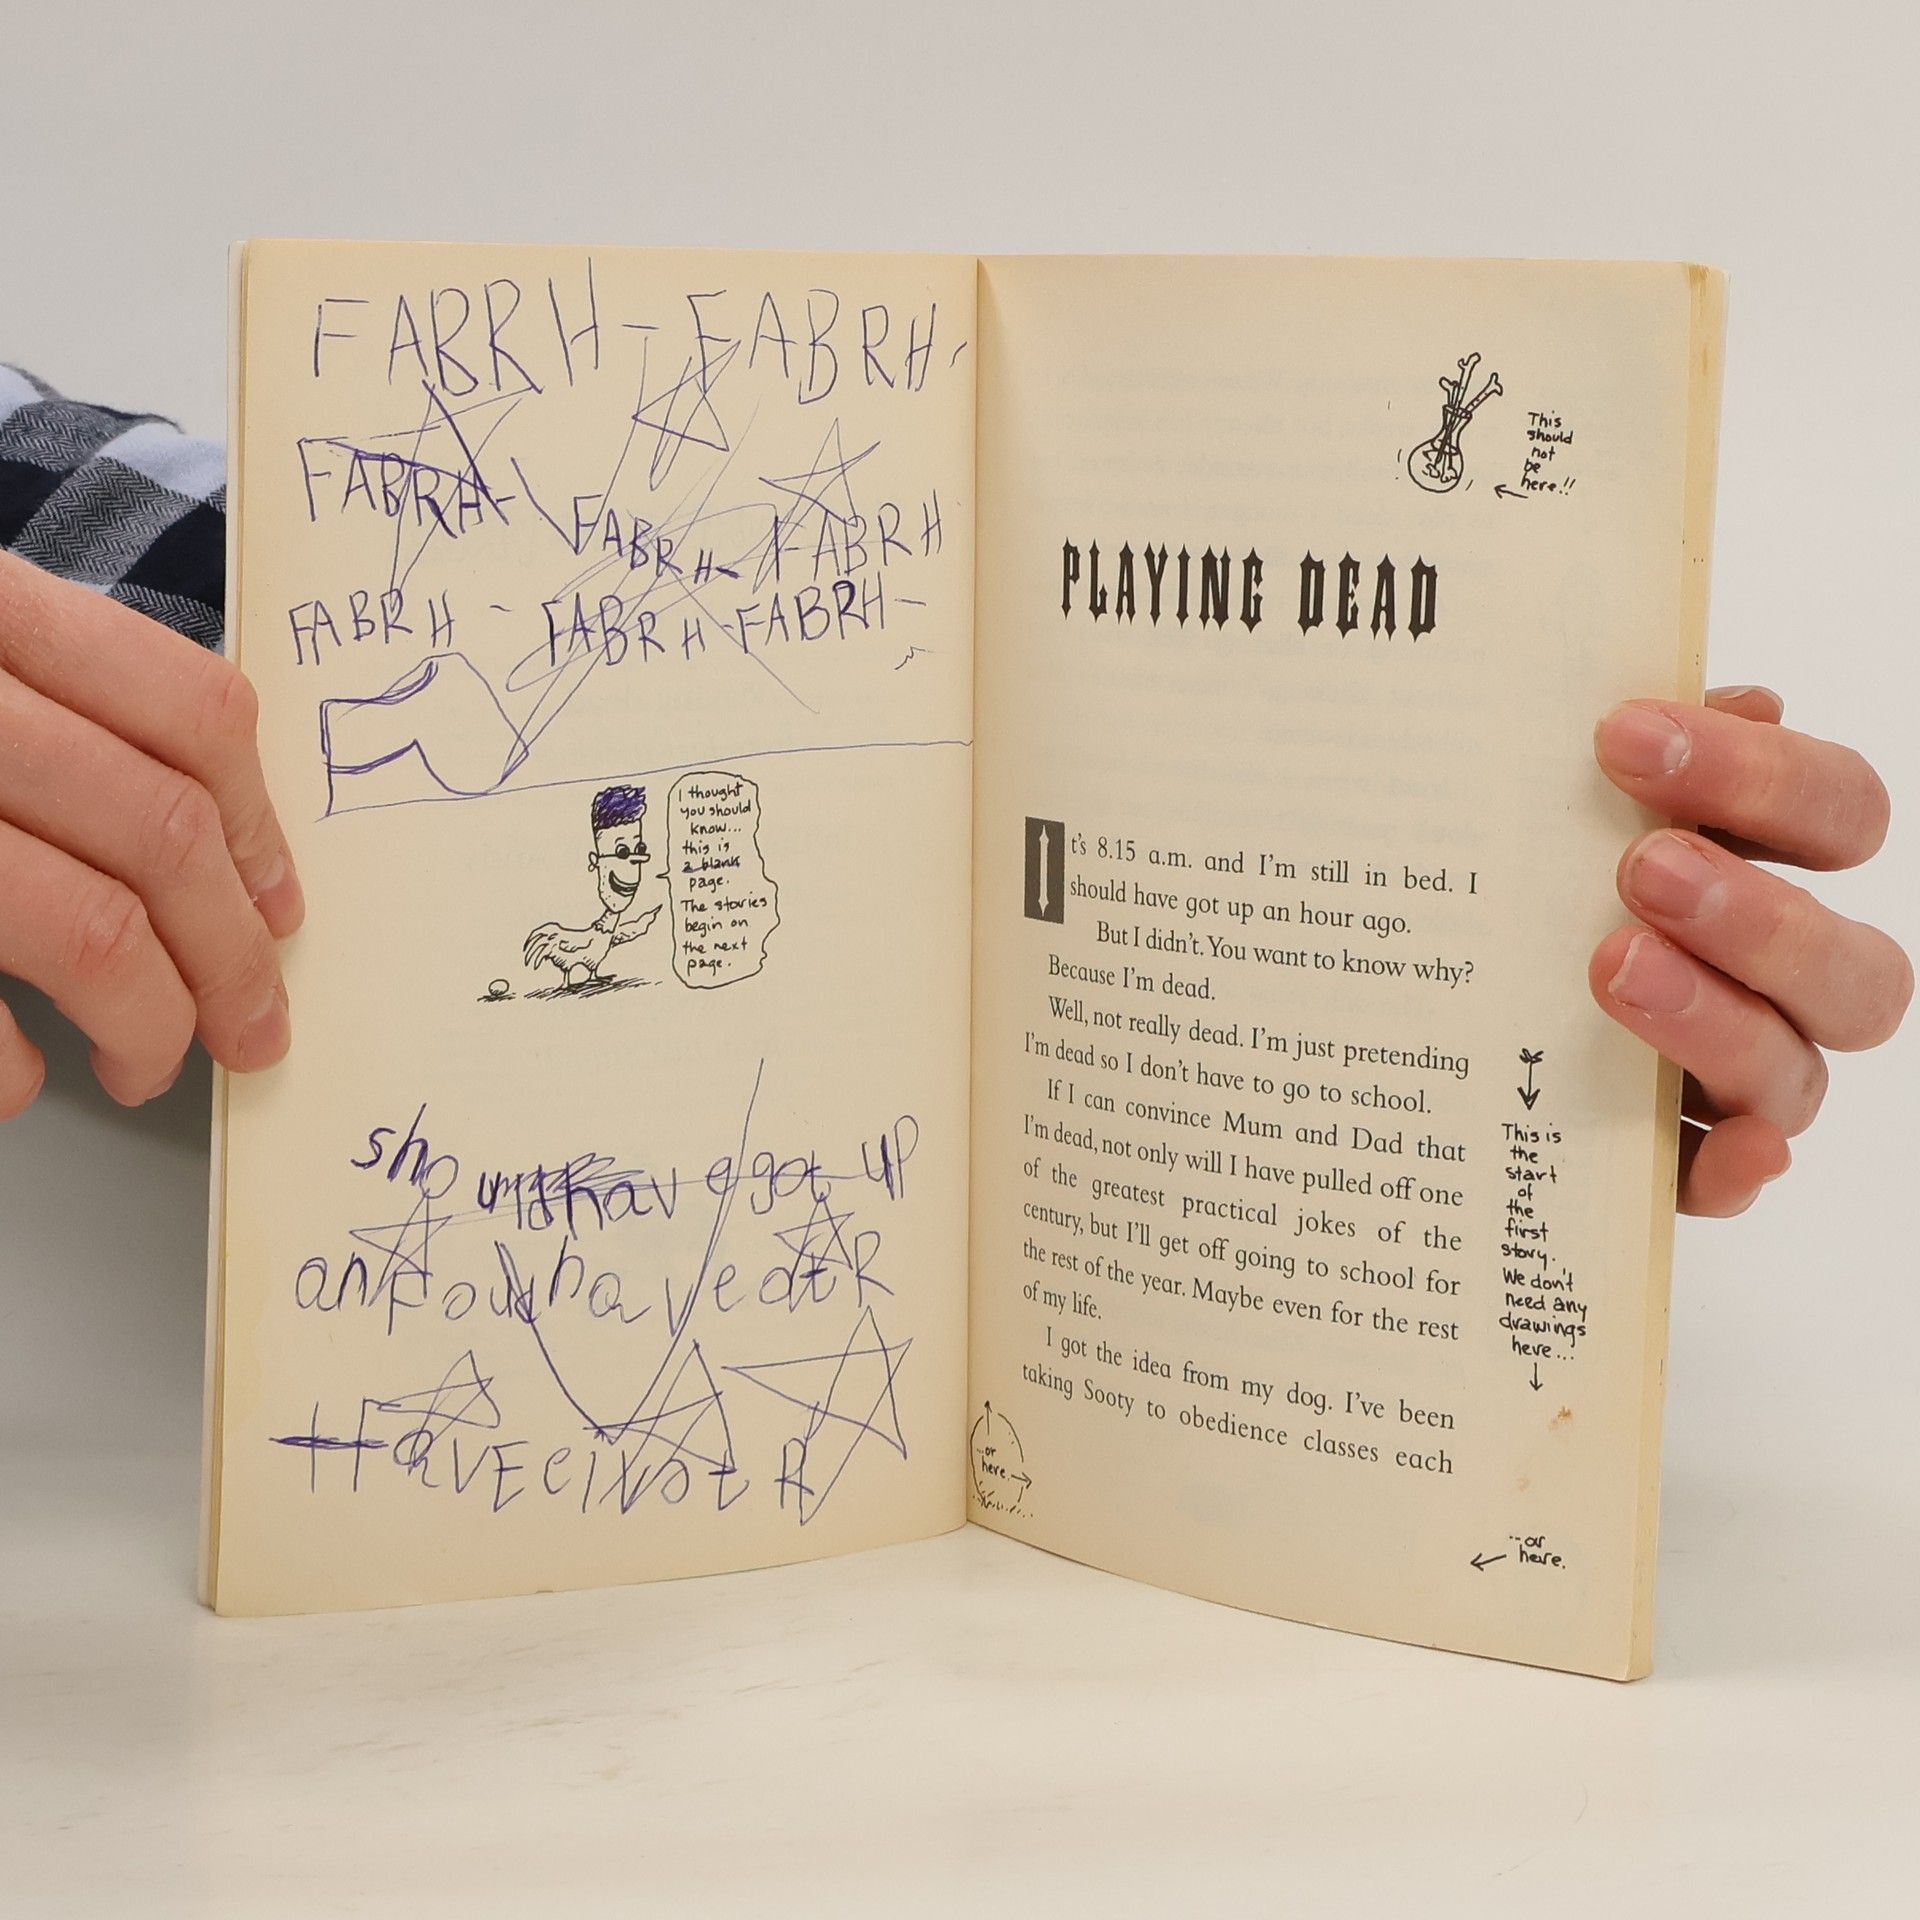 FABRH - FABRH -
FABRH - FABRH - FABRH
FABRH - FABRH - FABRH -
I thought
you should
know...
this is
a blank
page.
The stories
begin on
the next
page.
have got up
This
should
not
be
here!!
PLAYING DEAD
It's 8.15 a.m. and I'm still in bed. I
should have got up an hour ago.
But I didn't. You want to know why?
Because I'm dead.
Well, not really dead. I'm just pretending
I'm dead so I don't have to go to school.
If I can convince Mum and Dad that
I'm dead, not only will I have pulled off one
of the greatest practical jokes of the
century, but I'll get off going to school for
the rest of the year. Maybe even for the rest
of my life.
I got the idea from my dog. I've been
taking Sooty to obedience classes each
This is
the
start
of
the
first
story.
We don't
need any
drawings
here...
...or
here.
...or
here.